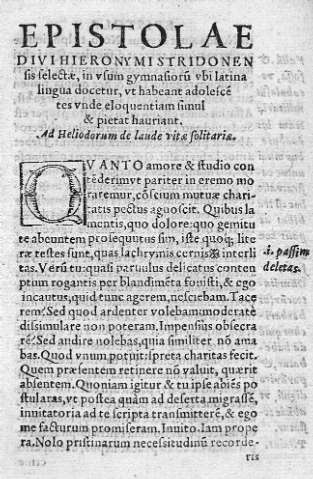 EPISTOLAE
DIVI HIERONYMI STRIDONEN
sis selectæ, in vsum gymnasiorũ vbi latina
lingua docetur, vt habeant adolescẽ
tes vnde eloquentiam simul
& pietat hauriant.
Ad Heliodorum de laude vitæ solitariæ.
QVANTO amore & studio con
tẽderimvt pariter in eremo mo
raremur, cõscium mutuæ chari
tatis pectus agnoscit. Quibus la
mentis, quo dolore: quo gemitu
te abeuntem prosequutus sim, istæ quoq; lite
ræ testes sunt, quas lachrymis cernis interli
tas. Verũ tu: quasi paruulus delicatus conten
ptum rogantis per blandimẽta fouisti, & ego
incautus, quid tunc agerem, nesciebam. Tace
rem? Sed quod ardenter volebam moderatè
dissimulare non poteram. Impensius obsecra
rẽ? Sed audire nolebas, quia similiter nõ ama
bas. Quod vnum potuit: spreta charitas fecit.
Quem præsentem retinere nõ valuit, quærit
absentem. Quoniam igitur & tu ipse abiẽs po
stularas, vt postea quàm ad deserta migrassẽ,
inuitatoria ad te scripta transmitterẽ, & ego
me facturum promiseram. Inuito. Iam prope
ra. Nolo pristinarum necessitudinũ recorde-
ris
.i. passim
deletas.